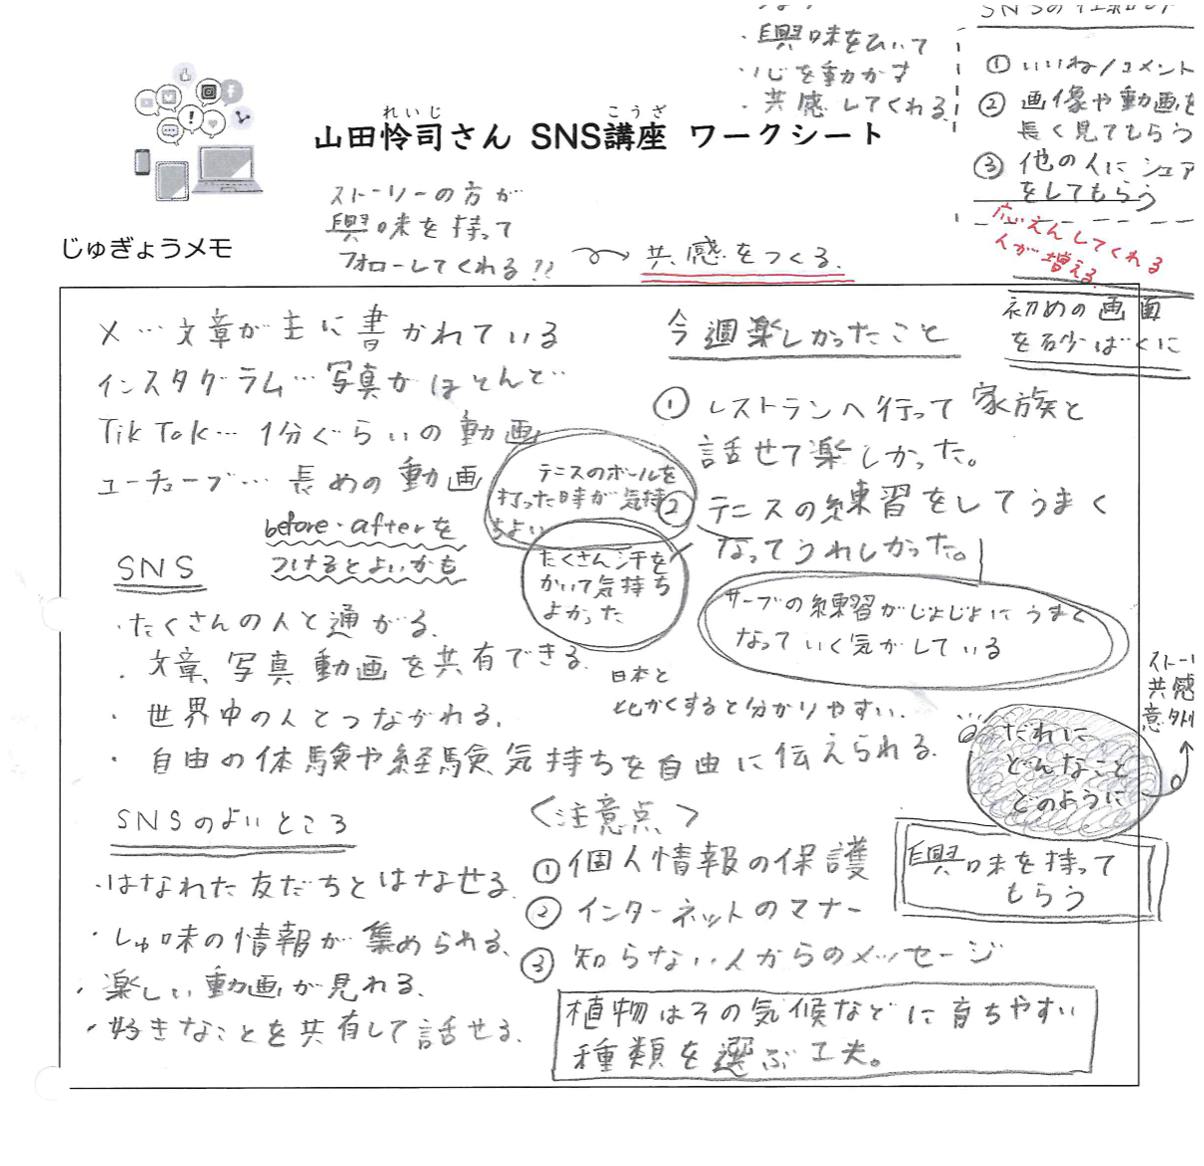 ・興味をひいて
・心を動かす
・共感してくれる
① いいね/コメント
② 画像や動画を
長く見てもらう
③ 他の人にシェア
をしてもらう
応えんしてくれる
人が増える。
れいじ こうざ
山田怜司さん SNS講座 ワークシート
ストーリーの方が
興味を持って
フォローしてくれる!?
共感をつくる。
じゅぎょうメモ
初めの画面
を砂ばくに
X…文章が主に書かれている
インスタグラム…写真がほとんど…
TikTok…1分ぐらいの動画
ユーチューブ…長めの動画
before・afterを
つけるとよいかも
SNS
・たくさんの人と通がる。
・文章、写真 動画を共有できる。
・世界中の人とつながれる。
・自由の体験や経験気持ちを自由に伝えられる。
SNSのよいところ
・はなれた友だちとはなせる。
・しゅ味の情報が集められる。
・楽しい動画が見れる。
・好きなことを共有して話せる。
今週楽しかったこと
① レストランへ行って家族と
話せて楽しかった。
② テニスの練習をしてうまく
なってうれしかった。
テニスのボールを
打った時が気持
ちよい
たくさん汗を
かいて気持ち
よかった
サーブの練習がじょじょにうまく
なっていく気がしている
日本と
比かくすると分かりやすい.
だれに
どんなこと
どのように
共感
意外
興味を持って
もらう
<注意点>
① 個人情報の保護
② インターネットのマナー
③ 知らない人からのメッセージ
植物はその気候などに育ちやすい
種類を選ぶ工夫。